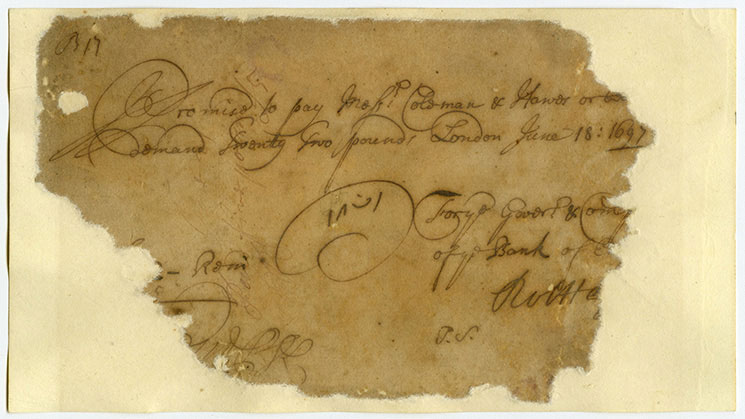 B 17
I Promise to pay Mess.rs Coleman & Hawes or
demand Twenty Two pounds London June 18: 1697
For ye Gover.r & Comp
of ye Bank of E
Rem
Rob
P. S.